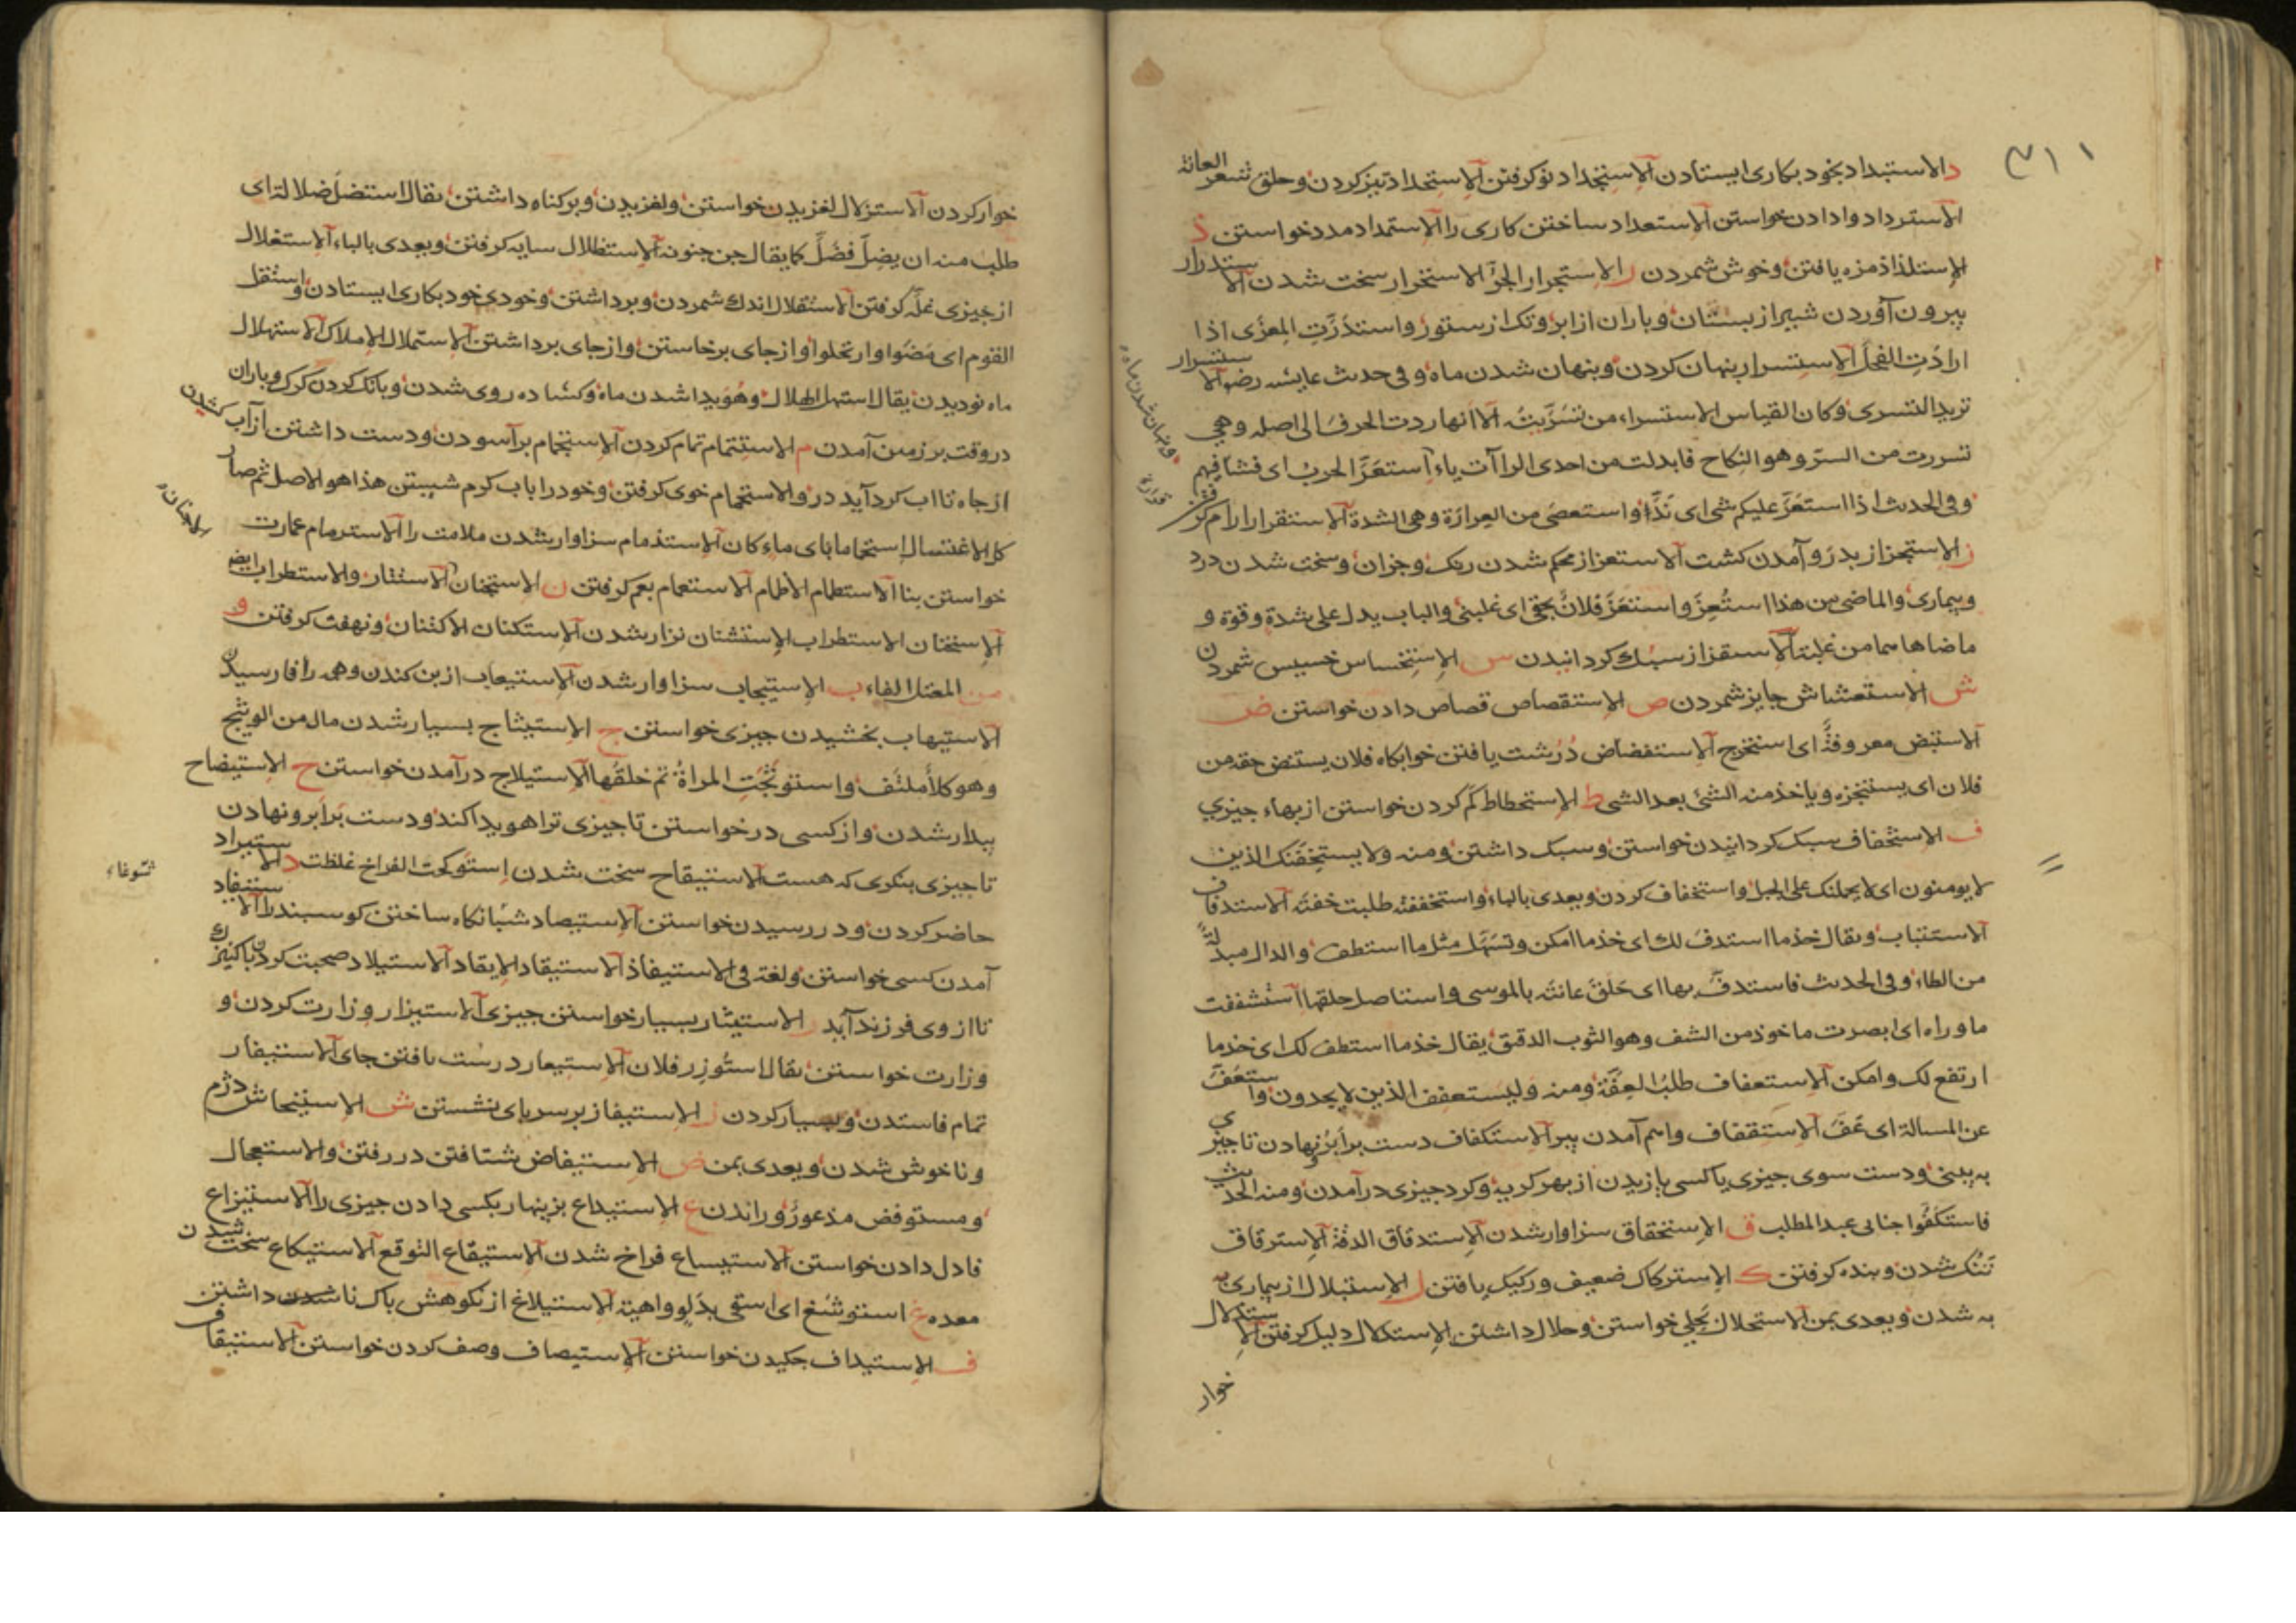 ٣١١
د الاستبداد بخود بکاری ایستادن الاستجداد نو کرفتن الاستحداد تیز کردن و حلق شعر العانة
الاسترداد وادادن خواستن الاستعداد ساختن کاری را الاستمداد مدد خواستن ذ
الاستلذاذ مزه یافتن و خوش شمردن ر الاستجرار الجرّ الاستحرار سخت شدن الاستدرار
بیرون آوردن شیر از بستان و باران از ابر و تک از ستور و استدرّت المعزی اذا
ارادت الفحل الاستسرار پنهان کردن و پنهان شدن ماه و فی حدیث عایشه رض الاستسرار
ترید التسری و کان القیاس الاستسراء من تسرّیت الا انها ردت الحرف الی اصله وهی
تسررت من السرّ و هو النکاح فابدلت من احدی الراآت یاء استعرّ الحرب ای فشا فیهم
و فی الحدیث اذا استعزّ علیکم شی ای ندّ و استعصی من العرارة وهی الشدة الاستقرار ارام کرفتن
ز الاستجزاز بدرو آمدن کشت الاستعزاز محکم شدن ریک و جزان و سخت شدن درد
و بیماری و الماضی من هذا استُعِزّ و استعزّ فلانٌ بحقی ای غلبنی و الباب یدل علی شدة و قوة و
ماضاهاهما من غلبة الاستفزاز سبک کردانیدن س الاستخساس خسیس شمردن
ش الاستعشاش جایز شمردن ص الاستقصاص قصاص دادن خواستن ض
الاستبض معروفةً ای استخرج الاستفضاض درشت یافتن خوابکاه فلان یستنض حقه من
فلان ای یستنجزه و یاخذ منه الشئ بعد الشی ط الاستحطاط کم کردن خواستن از بهاء جیزی
ف الاستخفاف سبک کردانیدن خواستن و سبک داشتن و منه و لا یستخفنّک الذین
لا یومنون ای لا یحملنک علی الجهل و استخفاف کردن و یعدی بالباء و استخففته طلبت خفته الاستدفاف
الاستتباب و یقال خذ ما استدفّ لک ای خذ ما امکن و تسهّل مثل ما استطف و الدال مبدلة
من الطاء و فی الحدیث فاستدفّ بها ای حلق عانته بالموسی و استاصل حلقها استشففت
ما وراه ای ابصرت ماخوذ من الشف و هو الثوب الدقیق یقال خذ ما استطف لک ای خذ ما
ارتفع لک و امکن الاستعفاف طلبُ العِفّة و منه ولیستعفف الذین لا یجدون و استعفّ
عن المسالة ای عفّ الاستقفاف واهم آمدن پیر الاستکفاف دست بر ابرو نهادن تا جیزی
به بینی و دست سوی جیزی یا کسی یازیدن از بهر کریه و کرد جیزی درآمدن و منه الحدیث
فاستکفّوا جنابی عبد المطلب ق الاستحقاق سزاوار شدن الاستدقاق الدقة الاسترقاق
تنک شدن و بنده کرفتن ک الاسترکاک ضعیف و رکیک یافتن ل الاستبلال از بیماری
به شدن و یعدی بمن الاستحلال بحلی خواستن و حلال داشتن الاستدلال دلیل کرفتن الاستذلال
خوار
و پنهان شدن ماه
خوار کردن الاستزلال لغزیدن خواستن و لغزیدن و بر کناه داشتن یقال استضل ضلالة ای
طلب منه ان یضِلّ فضلّ کما یقال جن جنونه الاستظلال سایه کرفتن و یعدی بالباء الاستغلال
از جیزی غلّه کرفتن الاستقلال اندک شمردن و برداشتن و خودی خود بکاری ایستادن و استقل
القوم ای مضوا و ارتحلوا و از جای برخاستن و از جای برداشتن الاستملال الاملاک الاستهلال
ماه نو دیدن یقال استهل الهلال و هویدا شدن ماه و کشاده روی شدن و بانک کردن کرک و باران
در وقت بر زمین آمدن م الاستتمام تمام کردن الاستجمام برآسودن و دست داشتن از آب کشیدن
از جاه تا اب کرد آید در و الاستحمام خوی کرفتن و خود را باب کرم شستن هذا هو الاصل ثم صار
کل الاغتسال استحماما بای ماء کان الاستذمام سزاوار شدن ملامت را الاسترمام عمارت
خواستن بنا الاستطمام الاطمام الاستعمام بعم کرفتن ن الاستجنان الاستتار و الاستطراب ایضا
الاستحنان الاستطراب الاستشنان نزار شدن الاستکنان الاکتنان و نهفت کرفتن و
من المعتل الفاء ب الاستیجاب سزاوار شدن الاستیعاب از بن کندن و همه را فا رسیدن
الاستیهاب بخشیدن جیزی خواستن ج الاستیثاج بسیار شدن مال من الوثیج
وهو کلأ ملتف و استوثجت المراة تم خلقها الاستیلاج درآمدن خواستن ح الاستیضاح
پیدار شدن و از کسی درخواستن تا جیزی ترا هویدا کند و دست بر ابرو نهادن
تا جیزی بنکری که هست الاستیقاح سخت شدن استوکحت الفراخ غلظت د الاستیراد
حاضر کردن و در رسیدن خواستن الاستیصاد شبانکاه ساختن کوسبند را الاستیفاد
آمدن کسی خواستن و لغة فی الاستیفاذ الاستیقاد الایقاد الاستیلاد صحبت کردن با کنیزک
تا از وی فرزند آید ر الاستیثار بسیار خواستن جیزی الاستیزار وزارت کردن و
وزارت خواستن یقال استوزر فلان الاستیعار درشت یافتن جای الاستیفار
تمام فاستدن و بسیار کردن ز الاستیفاز بر سر پای نشستن ش الاستیحاش دژم
و ناخوش شدن و یعدی بمن ض الاستیفاض شتافتن در رفتن و الاستعجال
و مستوفض مذعور و راندن ع الاستیداع بزینهار بکسی دادن جیزی را الاستیزاع
فا دل دادن خواستن الاستیساع فراخ شدن الاستیقاع التوقع الاستیکاع سخت شدن
معده غ استوشغ ای استقی بدلو واهیة الاستیلاغ از نکوهش باک نا داشتن
ف الاستیداف جکیدن خواستن الاستیصاف وصف کردن خواستن الاستیقاف